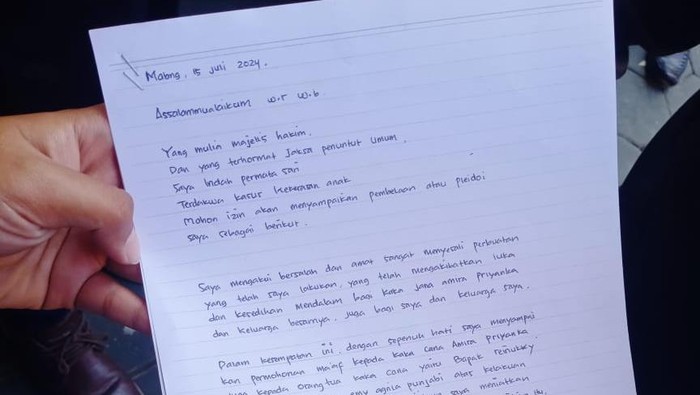 Malang, 15 Juli 2024.
Assalammualaikum w.r w.b
Yang mulia majelis hakim.
Dan yang terhormat Jaksa penuntut umum.
Saya Indah permata sari
Terdakwa kasus kekerasan anak
Mohon izin akan menyampaikan pembelaan atau pleidoi
saya sebagai berikut.
Saya mengakui bersalah dan amat sangat menyesali perbuatan
yang telah saya lakukan, yang telah mengakibatkan luka
dan kesedihan Mendalam bagi kaka Jana amira priyanka
dan keluarga besarnya. Juga bagi saya dan keluarga saya.
Dalam kesempatan ini, dengan sepenuh hati saya menyampai
kan permohonan maaf kepada kaka cana Amira Priyanka
kepada orangtua kaka cana yaitu Bapak reinukky
emy agnia punjabi atas kelakuan
saya meniatkan